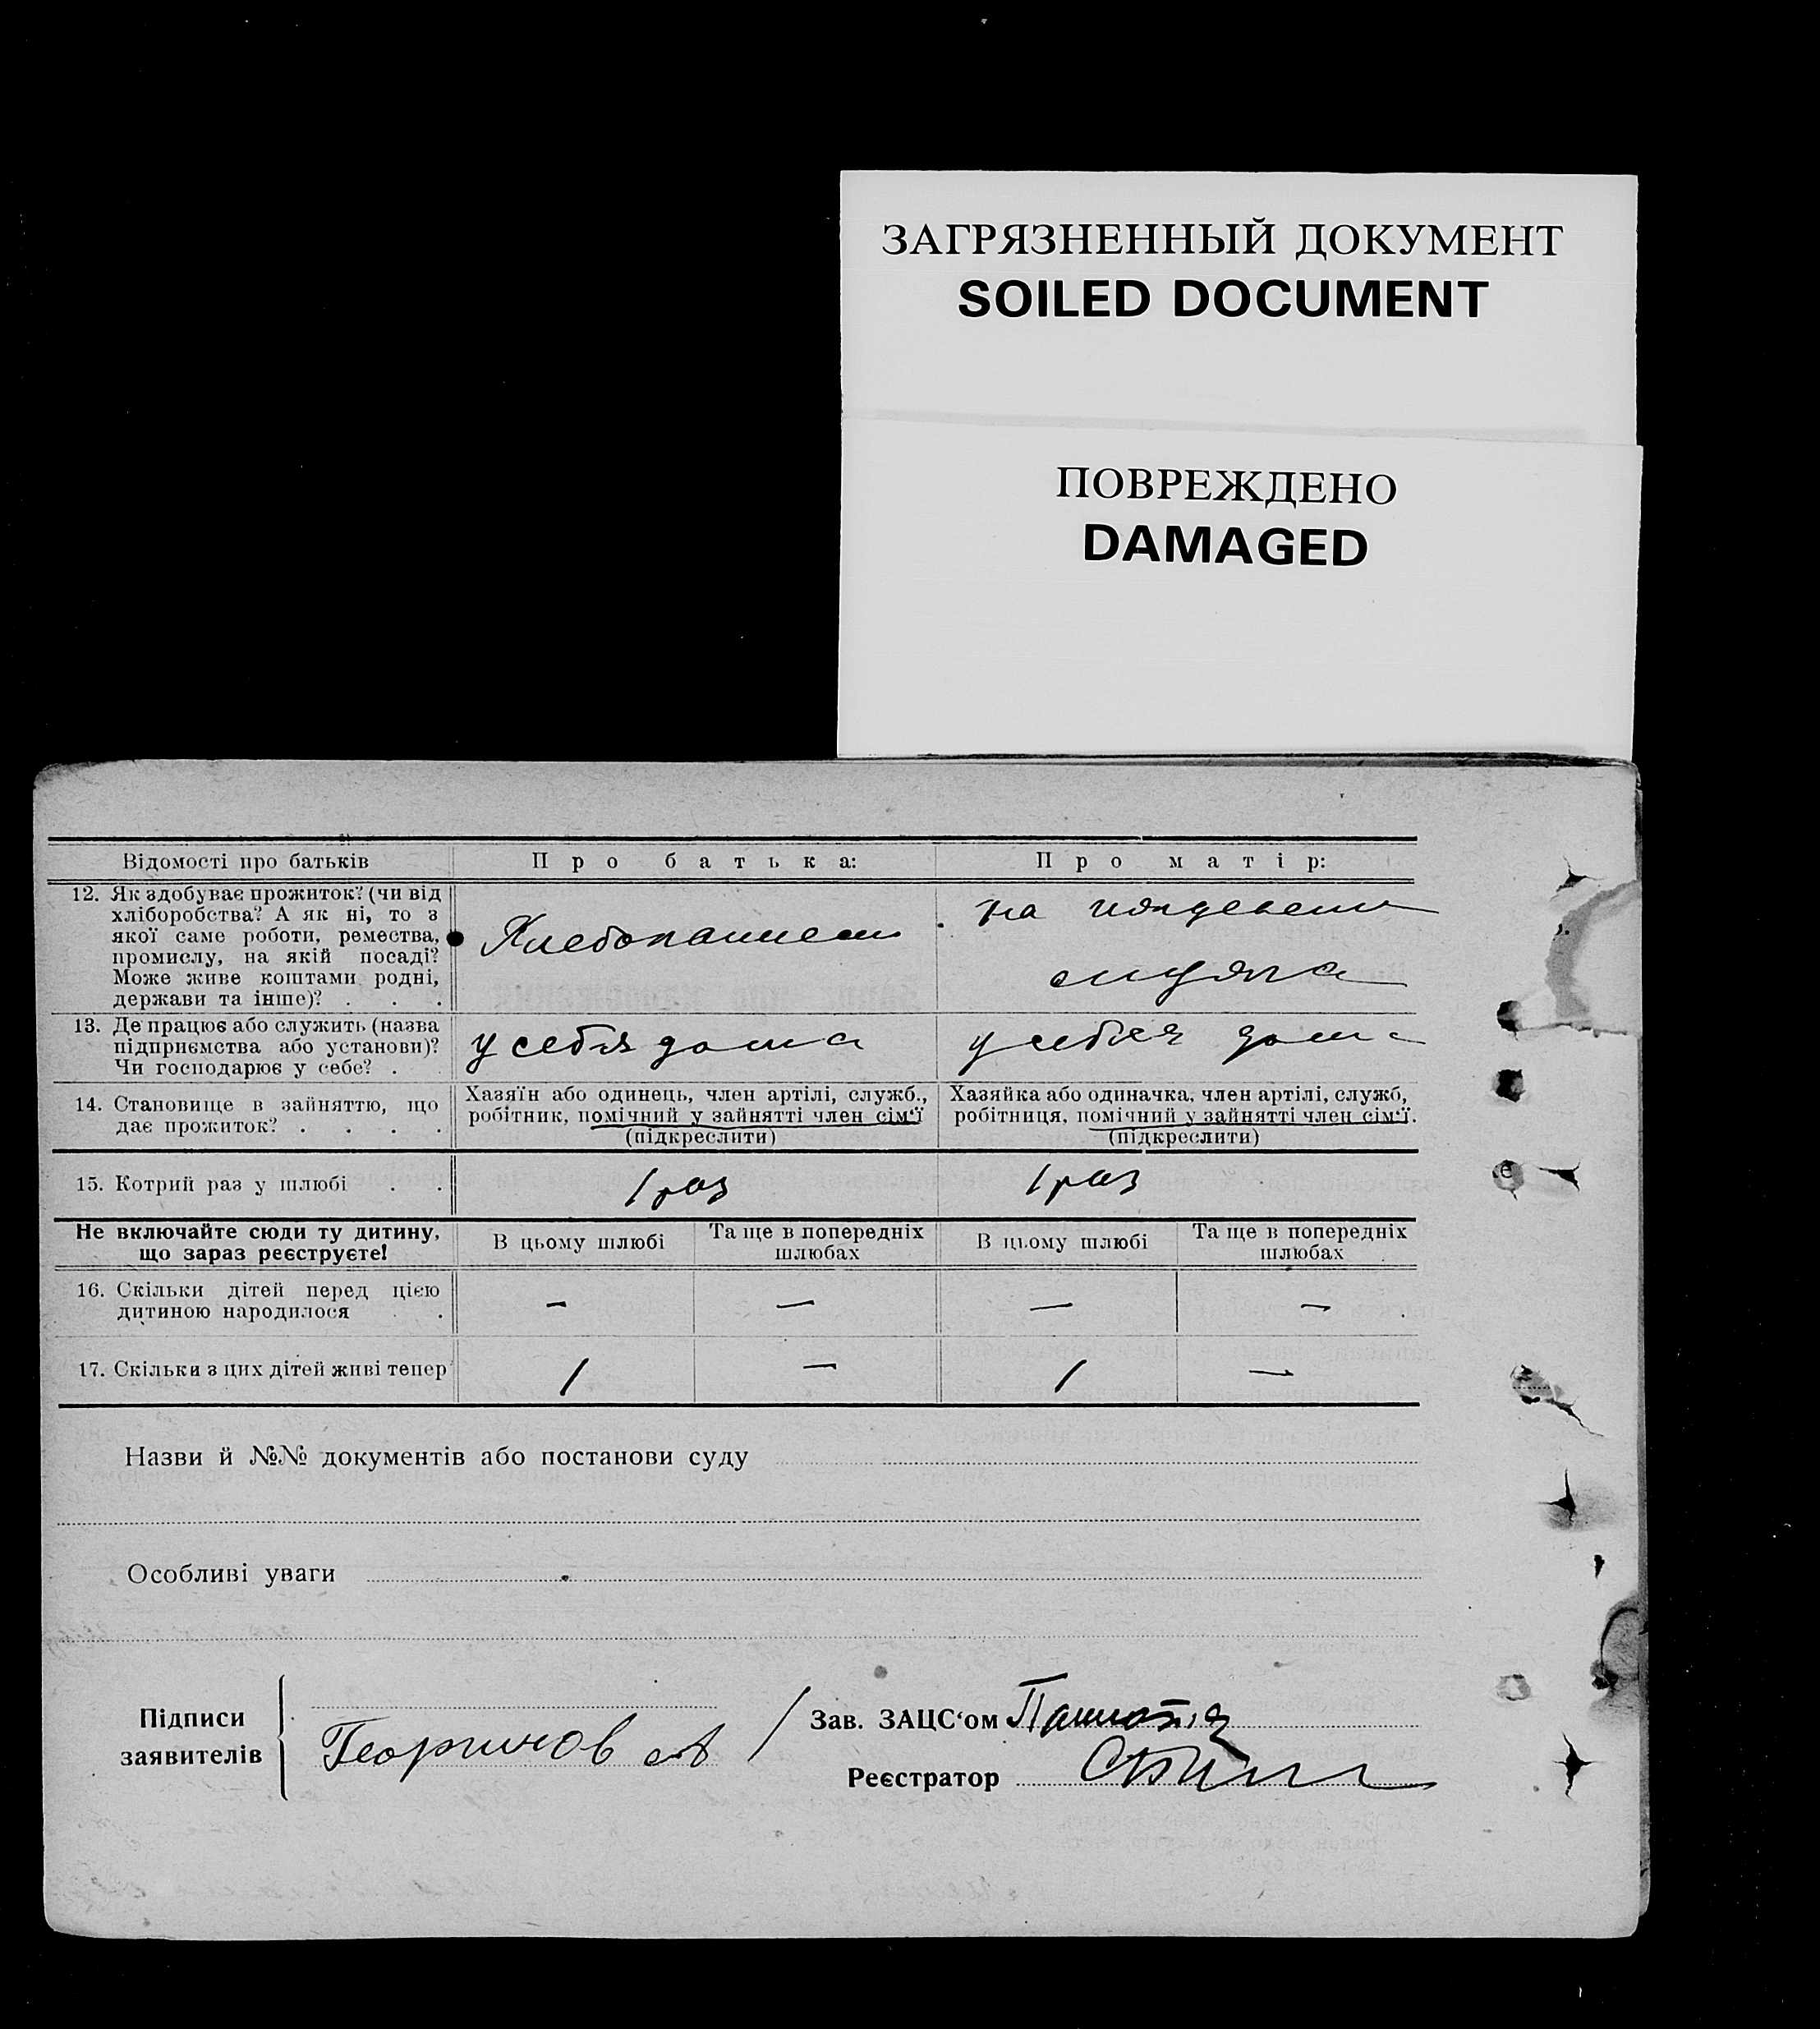 ЗАГРЯЗНЕННЫЙ ДОКУМЕНТ
SOILED DOCUMENT
ПОВРЕЖДЕНО
DAMAGED
Відомості про батьків
Про батька:
Про матір:
12. Як здобуває прожиток? (чи від
хліборобства? А як ні, то з
якої саме роботи, ремества,
промислу, на якій посаді?
Може живе коштами родні,
держави та інше)? . . .
Хлебопашеством
на иждевении
мужа
13. Де працює або служить (назва
підприємства або установи)?
Чи господарює у себе? .
у себя дома
у себя дома
14. Становище в зайняттю, що
дає прожиток? . . . .
Хазяїн або одинець, член артілі, служб.,
робітник, помічний у зайнятті член сім'ї
(підкреслити)
Хазяйка або одиначка, член артілі, служб,
робітниця, помічний у зайнятті член сім'ї.
(підкреслити)
15. Котрий раз у шлюбі . .
1 раз
1 раз
Не включайте сюди ту дитину,
що зараз реєструєте!
В цьому шлюбі
Та ще в попередніх
шлюбах
В цьому шлюбі
Та ще в попередніх
шлюбах
16. Скільки дітей перед цією
дитиною народилося .
—
—
—
—
17. Скільки з цих дітей живі тепер
1
—
1
—
Назви й №№ документів або постанови суду
Особливі уваги
Підписи
заявителів
Зав. ЗАЦС'ом
Реєстратор